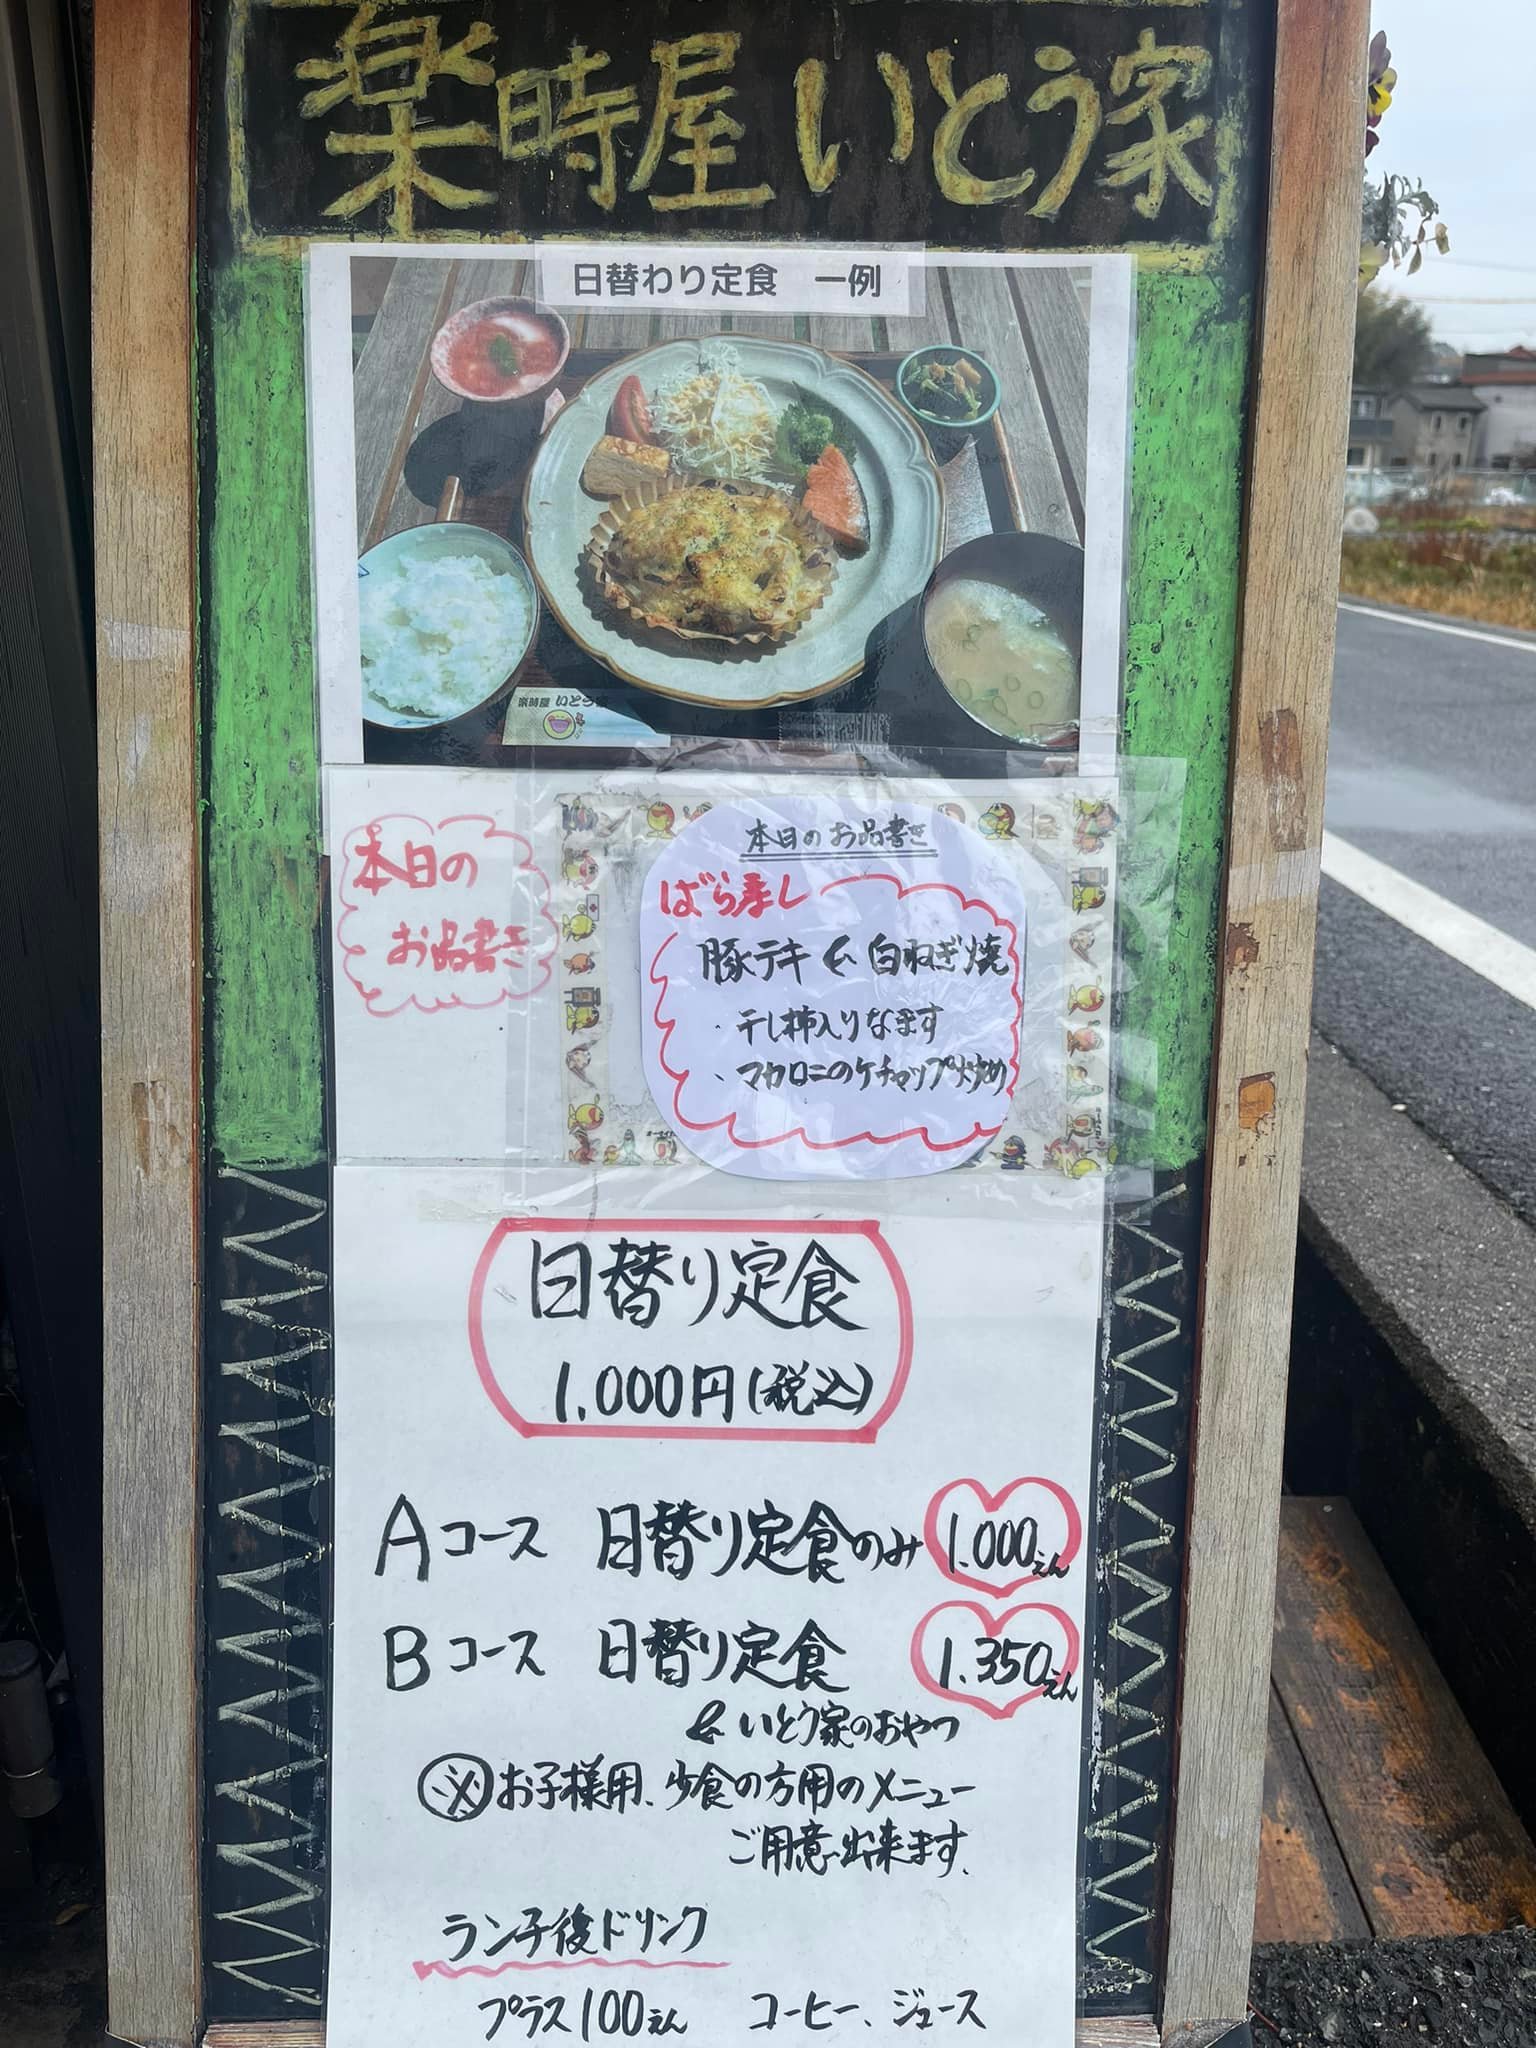 楽時屋 いとう家
日替わり定食　一例
楽時屋 いとう家
本日の
お品書き
本日のお品書き
豚テキ & 白ねぎ焼
・干し柿入りなます
・マカロニのケチャップ炒め
日替り定食
1.000円(税込)
Aコース 日替り定食のみ 1.000えん
Bコース 日替り定食 1.350えん
& いとう家のおやつ
※お子様用、少食の方用のメニュー
ご用意出来ます。
ランチ後ドリンク
プラス100えん コーヒー、ジュース